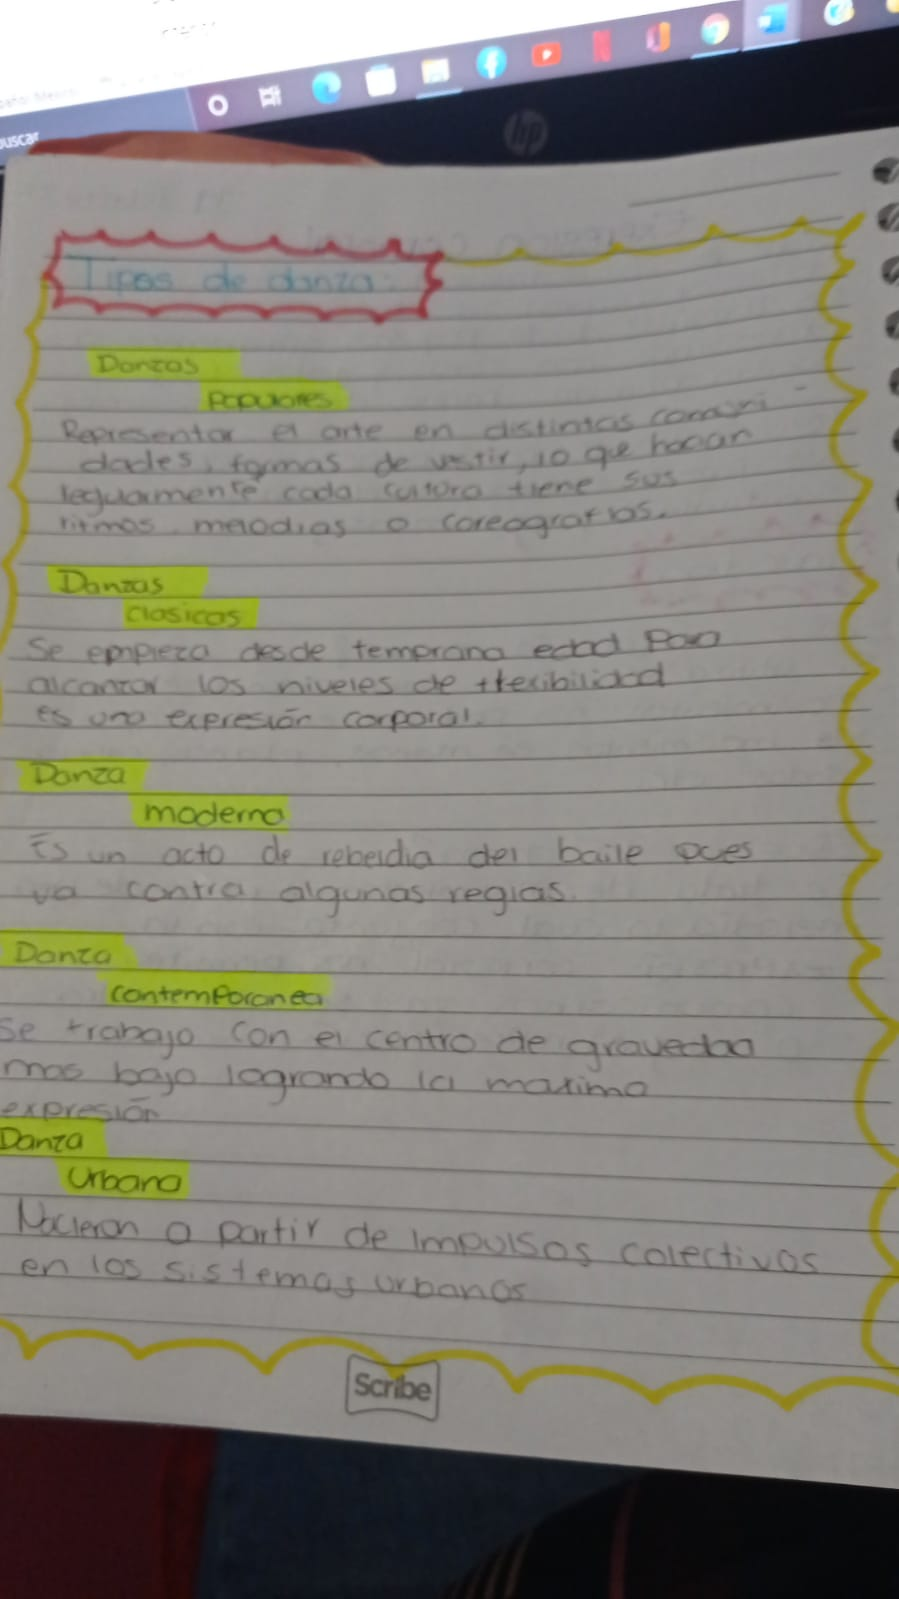 buscar
hp
Tipos de danza:
Danzas
Populares
Representar el arte en distintas comuni-
dades, formas de vestir, lo que hacan
leguarmente cada cultura tiene sus
ritmos melodias o coreografias.
Danzas
clasicas
Se empieza desde temprana edad Para
alcanzar los niveles de flexibilidad
es una expresión corporal.
Danza
moderna
Es un acto de rebeldia del baile pues
va contra algunas reglas.
Danza
contemporanea
Se trabajo con el centro de gravedad
mas bajo logrando la maxima
expresión
Danza
Urbana
Nacieron a partir de impulsos colectivos
en los sistemas urbanos
Scribe